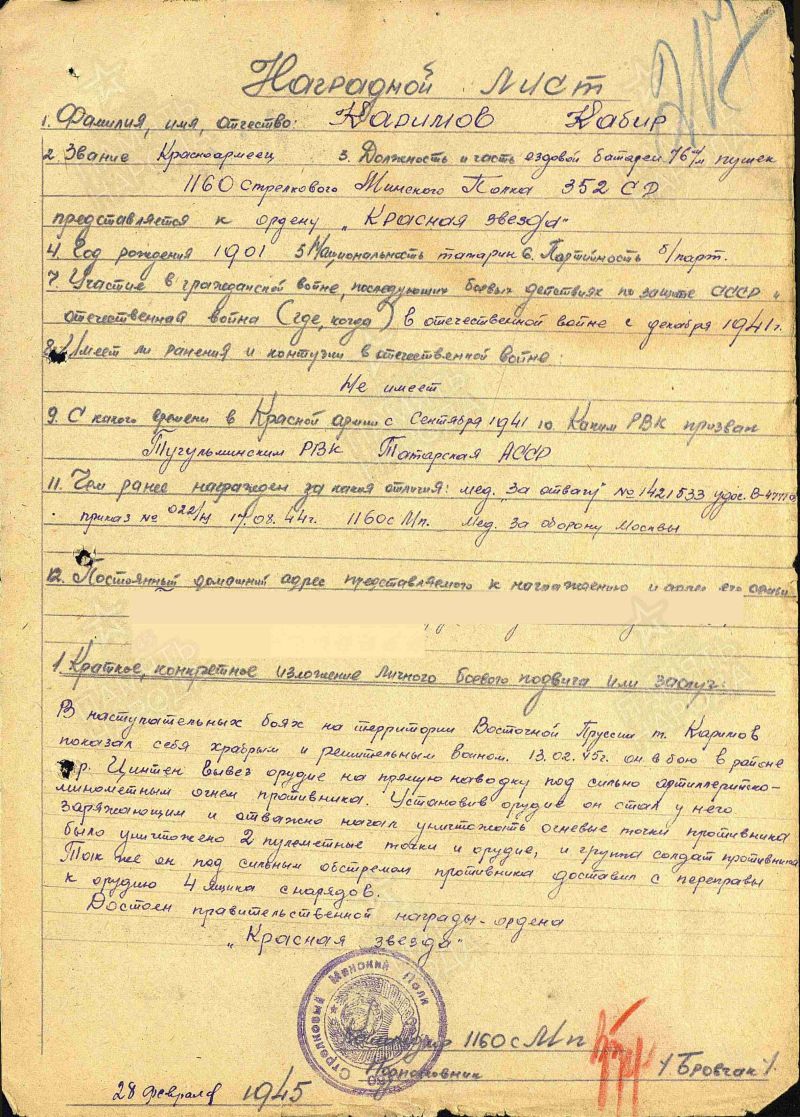 217
Наградной лист
1. Фамилия, имя, отчество: Каримов Кабир
2. Звание Красноармеец 3. Должность и часть ездовой батареи 76 м/м пушек
1160 Стрелкового Минского Полка 352 СД
представляется к ордену „Красная звезда"
4. Год рождения 1901 5 Национальность татарин 6. Партийность б/парт.
7. Участие в гражданской войне, последующих боевых действиях по защите СССР и
отечественная война (где, когда) в отечественной войне с декабря 1941 г.
8. Имеет ли ранения и контузии в отечественной войне:
Не имеет
9. С какого времени в Красной армии с Сентября 1941 10. Каким РВК призван
Тугульминским РВК Татарская АССР
11. Чем ранее награжден за какия отличия: мед. „За отвагу" № 1421533 удос. В-
приказ № 022/н 17.08.44г. 1160 с Мп. Мед. За оборону Москвы
12. Постоянный домашний адрес представляемого к награждению и адрес его семьи
1. Краткое, конкретное изложение личного боевого подвига или заслуг:
В наступательных боях на территории Восточной Пруссии т. Каримов
показал себя храбрым и решительным воином. 13.02.45г. он в бою в районе
гор. Цинтен вывез орудие на прямую наводку под сильно артиллерийско-
минометным огнем противника. Установив орудие он стал у него
заряжающим и отважно начал уничтожать огневые точки противника
было уничтожено 2 пулеметные точки и орудие, и группа солдат противника
Так же он под сильным обстрелом противника доставил с переправы
к орудию 4 ящика снарядов.
Достоен правительственной награды - ордена
„Красная звезда"
Стрелковый Минский Полк
1160
Командир 1160 с Мп
Подполковник / Бровчак /.
28 февраля 1945